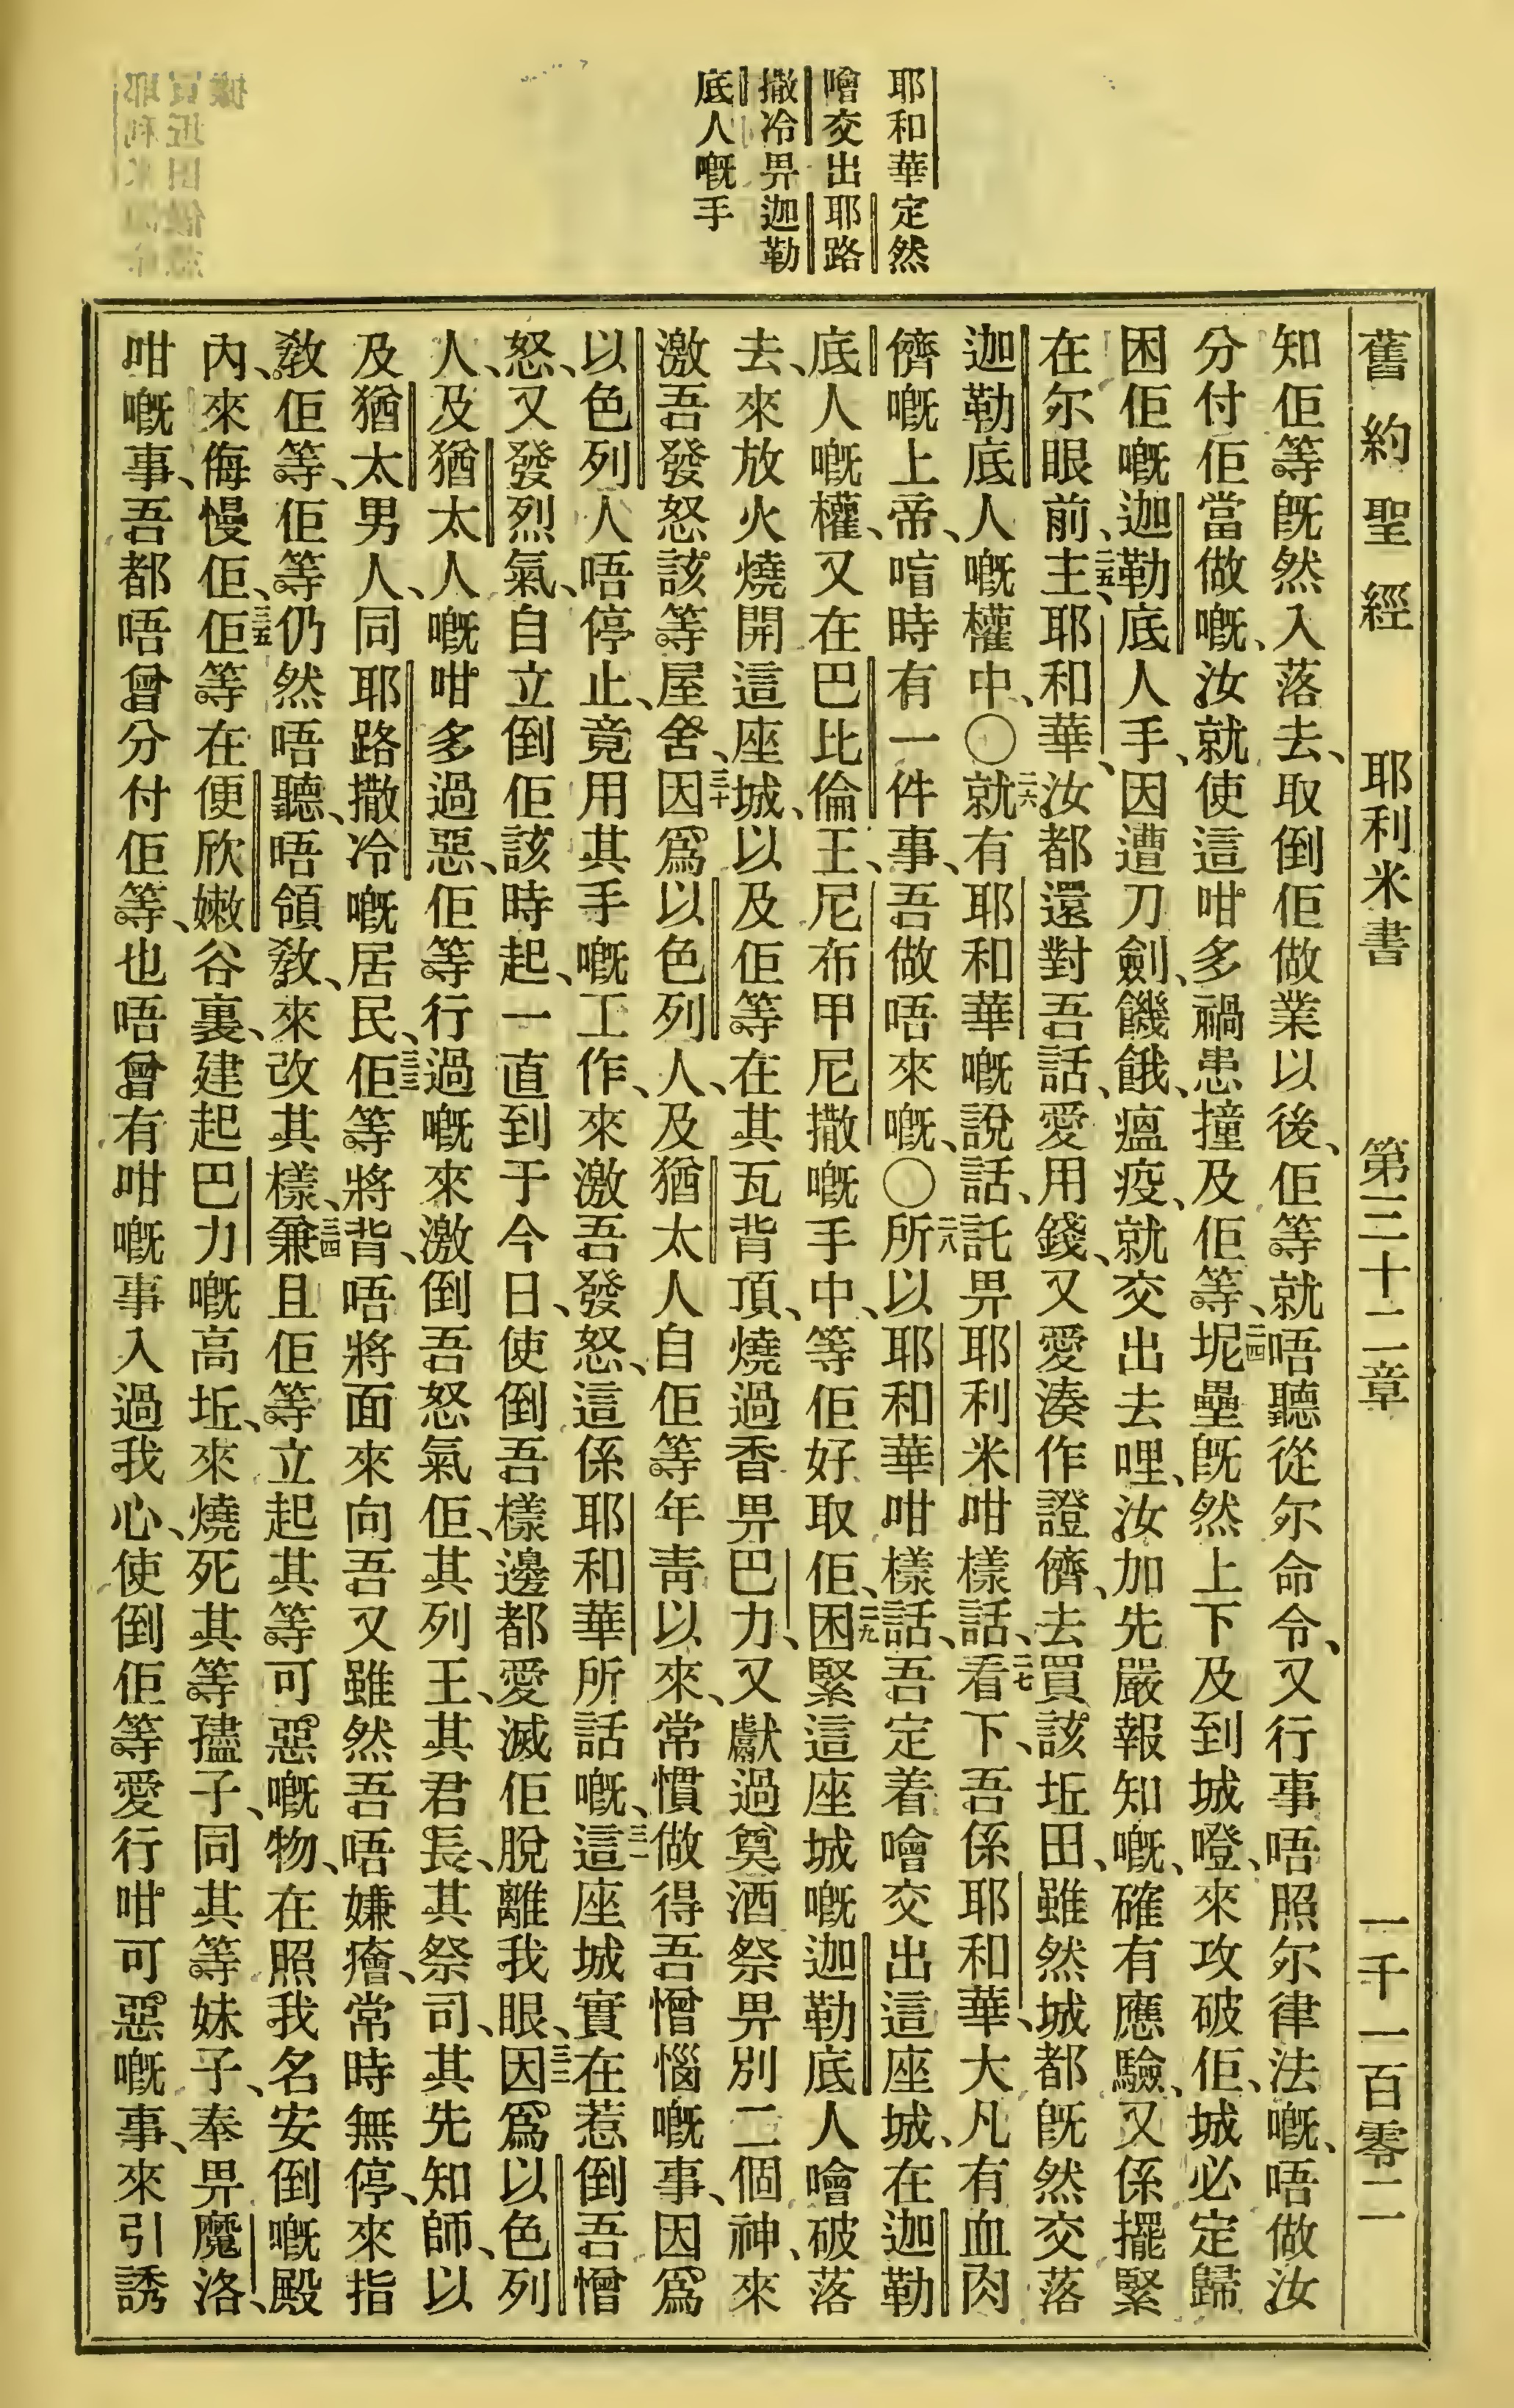 耶和華定然
噲交出耶路
撒冷畀迦勒
底人嘅手
舊約聖經 耶利米書 第三十二章 一千一百零二
知佢等旣然入落去、取倒佢做業以後、佢等就唔聽從尔命令、又行事唔照尔律法嘅、唔做汝
分付佢當做嘅、汝就使這咁多禍患撞及佢等、二四坭壘旣然上下及到城嶝、來攻破佢、城必定歸
困佢嘅迦勒底人手、因遭刀劍、饑餓、瘟疫、就交出去哩、汝加先嚴報知嘅、確有應驗、又係擺緊
在尔眼前、二五主、耶和華、汝都還對吾話、愛用錢、又愛湊作證儕、去買該坵田、雖然城都旣然交落
迦勒底人嘅權中、〇二六就有耶和華嘅說話、託畀耶利米咁樣話、二七看下、吾係耶和華、大凡有血肉
儕嘅上帝、喧時有一件事、吾做唔來嘅、〇二八所以耶和華咁樣話、吾定着噲交出這座城、在迦勒
底人嘅權、又在巴比倫王、尼布甲尼撒嘅手中、等佢好取佢、二九困緊這座城嘅迦勒底人噲破落
去、來放火燒開這座城、以及佢等在其瓦背頂、燒過香畀巴力、又獻過奠酒祭畀別二個神、來
激吾發怒該等屋舍、三十因爲以色列人、及猶太人自佢等年靑以來、常慣做得吾憎惱嘅事、因爲
以色列人唔停止、竟用其手嘅工作、來激吾發怒、這係耶和華所話嘅、三一這座城實在惹倒吾憎
怒、又發烈氣、自立倒佢該時起、一直到于今日、使倒吾樣邊都愛滅佢脫離我眼、三二因爲以色列
人、及猶太人嘅咁多過惡、佢等行過嘅來激倒吾怒氣佢、其列王、其君長、其祭司、其先知師、以
及猶太男人、同耶路撒冷嘅居民、三三佢等將背、唔將面來向吾又雖然吾唔嫌癐、常時無停、來指
敎佢等、佢等仍然唔聽、唔領敎、來改其樣、三四兼且佢等立起其等可惡嘅物、在照我名安倒嘅殿
內、來侮慢佢、三五佢等在便欣嫩谷裏、建起巴力嘅高坵、來燒死其等孻子、同其等妹子、奉畀魔洛、
咁嘅事、吾都唔曾分付佢等、也唔曾有咁嘅事入過我心、使倒佢等愛行咁可惡嘅事、來引誘